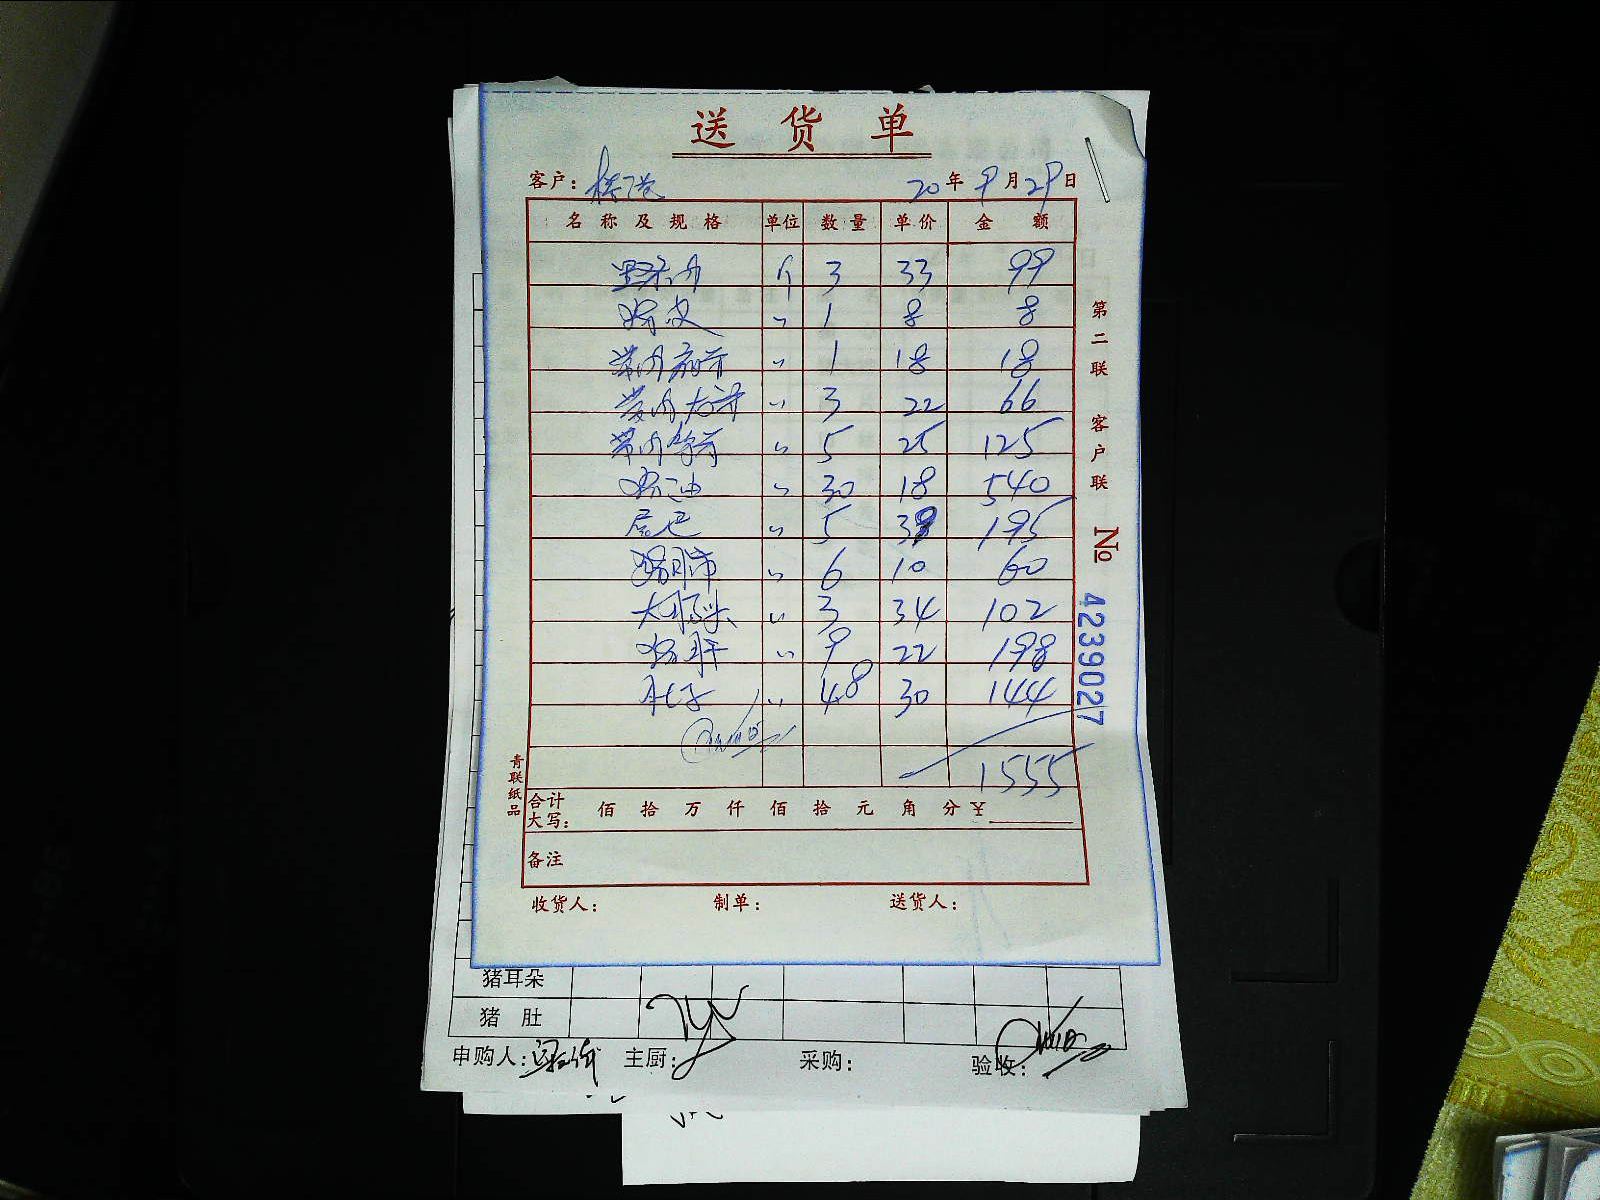 送货单
客户： 20年9月29日
名称及规格 单位 数量 单价 金额
个 3 33 99
〃 1 8 8
带肉 〃 1 18 18
带肉大骨 〃 3 22 66
带肉 〃 5 25 125
〃 30 18 540
尾巴 〃 5 39 195
猪肺 〃 6 10 60
大肠头 〃 3 34 102
猪肝 〃 9 22 198
肚子 〃 4.8 30 144
1555
合计大写： 佰 拾 万 仟 佰 拾 元 角 分 ¥
备注
收货人： 制单： 送货人：
第二联 客户联
№ 4239027
青联纸品
猪耳朵
猪肚
申购人： 主厨： 采购： 验收：